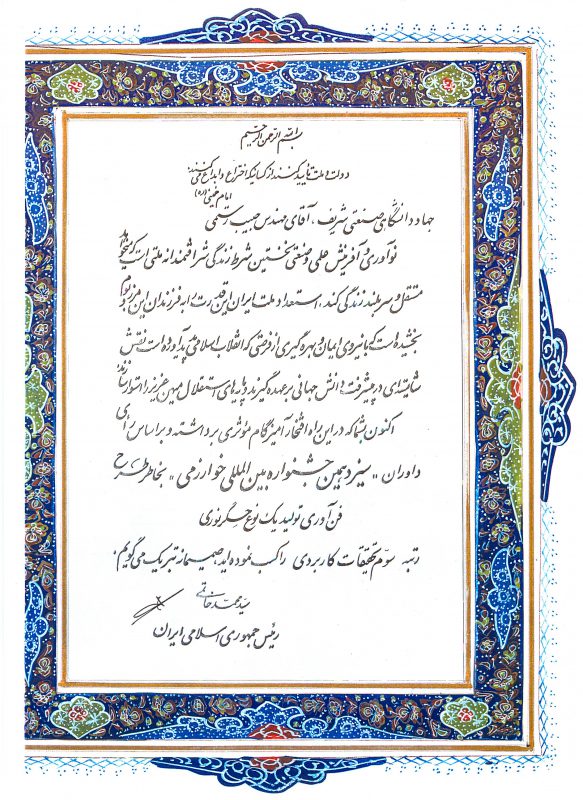 بسم الله الرحمن الرحیم
دولت و ملت تأیید کنند از کسانیکه اختراع و ابداع می کنند.
امام خمینی (ره)
جهاد دانشگاهی صنعتی شریف، آقای مهندس حبیب رستمی
نوآوری و آفرینش علمی و صنعتی نخستین شرط زندگی شرافتمندانه ملتی است که میخواهد
مستقل و سربلند زندگی کند. استعداد ملت ایران این قدرت را به فرزندان این مرز و بوم
بخشیده است که با نیروی ایمان و بهره گیری از فرصتی که انقلاب اسلامی پدید آورده است نقش
شایسته ای در پیشرفت دانش جهانی بر عهده گیرند و پایه های استقلال میهن عزیز را استوار سازند.
اکنون شما که در این راه افتخار آمیز گام مؤثری برداشته و بر اساس رأی
داوران "سیزدهمین جشنواره بین المللی خوارزمی" بخاطر طرح
فن آوری تولید یک نوع حسگر نوری
رتبه سوم تحقیقات کاربردی را کسب نموده اید صمیمانه تبریک می گویم.
سید محمد خاتمی
رئیس جمهوری اسلامی ایران